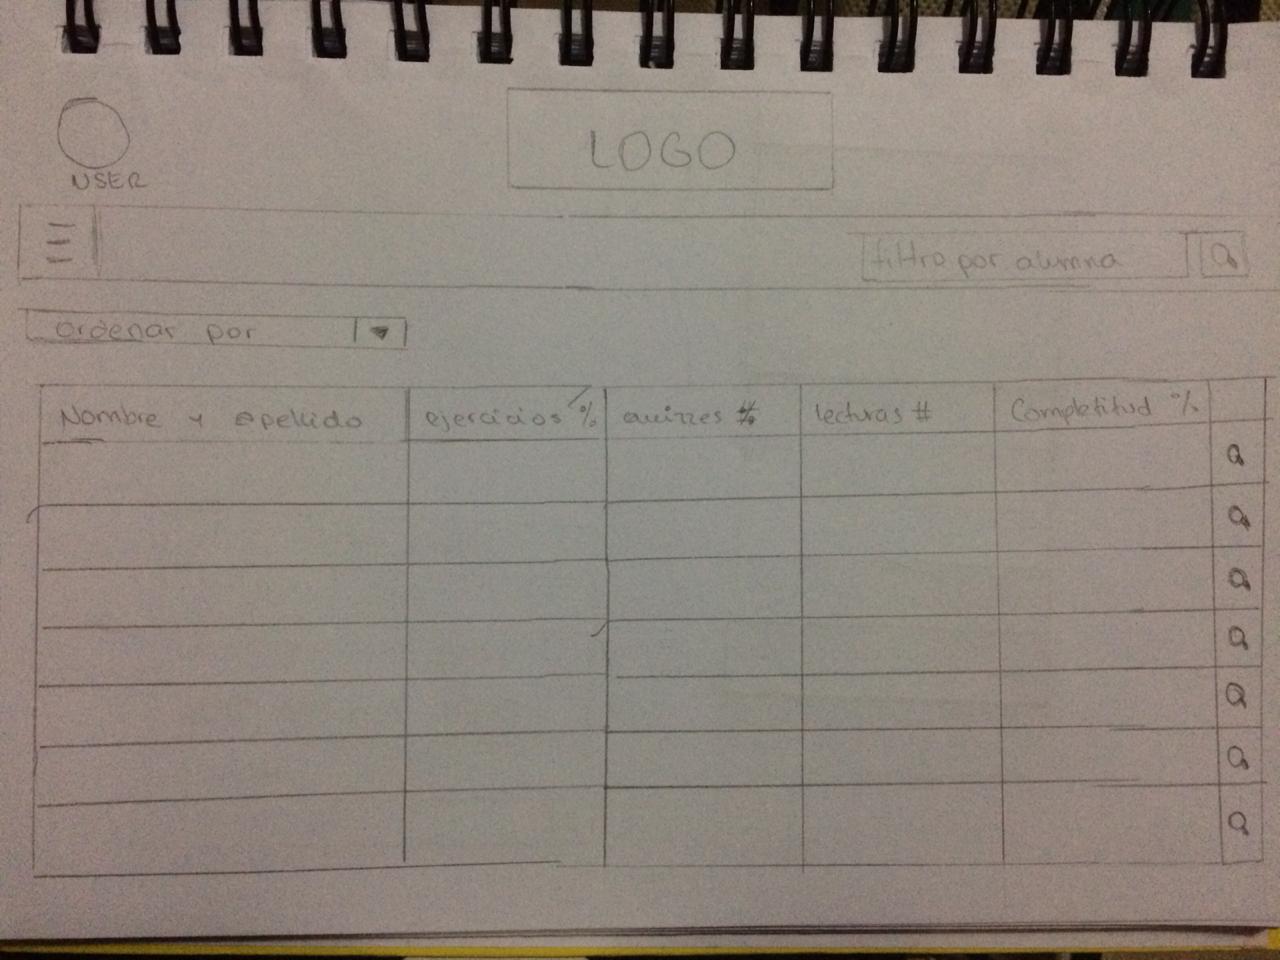 LOGO
USER
filtro por alumna
ordenar por
Nombre y apellido
ejercicios %
quizzes %
lecturas #
Completitud %